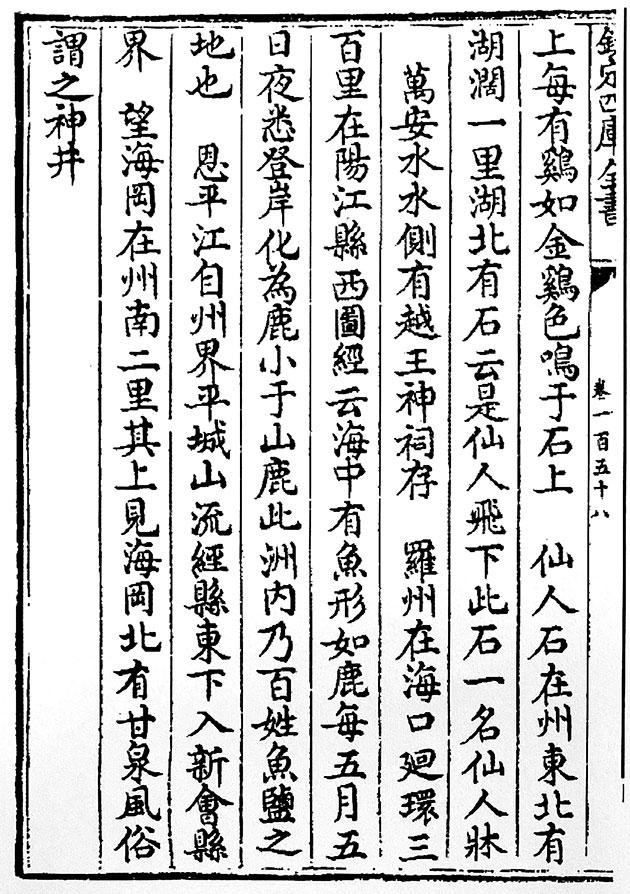 欽定四庫全書
卷一百五十八
上每有鷄如金鷄色鳴于石上　仙人石在州東北有
湖濶一里湖北有石云是仙人飛下此石一名仙人牀
萬安水水側有越王神祠存　羅州在海口廻環三
百里在陽江縣西圖經云海中有魚形如鹿每五月五
日夜悉登岸化為鹿小于山鹿此洲内乃百姓魚鹽之
地也　恩平江自州界平城山流經縣東下入新㑹縣
界　望海岡在州南二里其上見海岡北有甘泉風俗
謂之神井